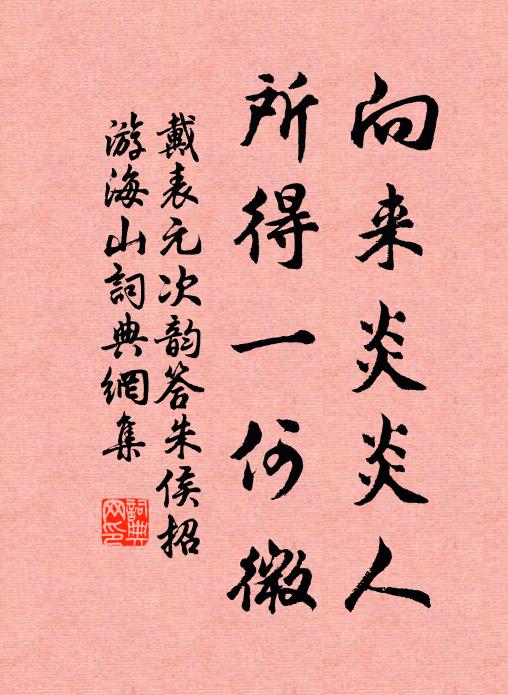 向来炎炎人
所得一何微
戴表元次韵答朱侯招
游海山詞典網集
詞典
网印